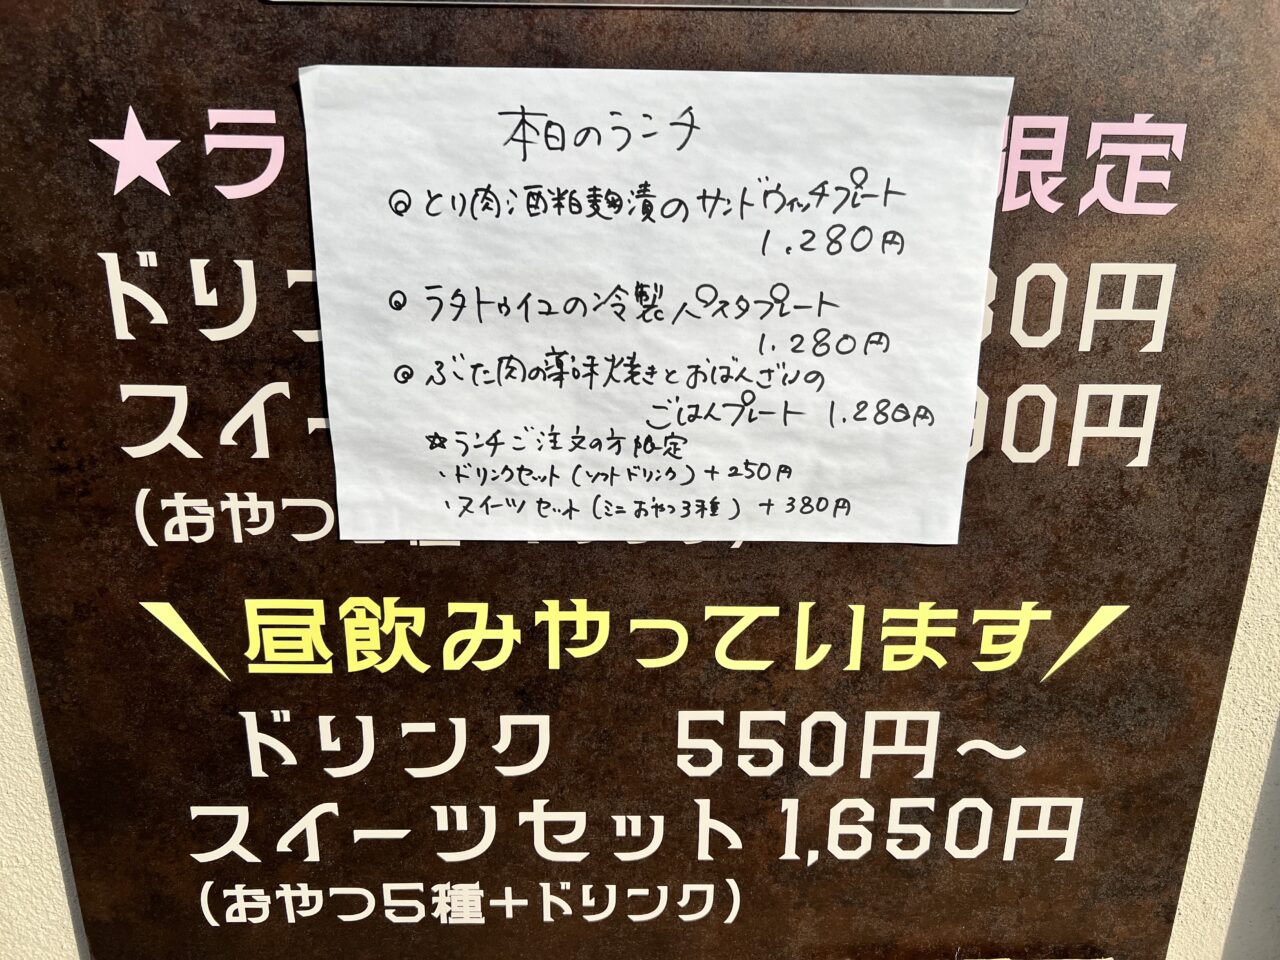 ★ラ
限定
本日のランチ
◎とり肉酒粕麹漬のサンドウィッチプレート
1.280円
◎ラタトゥイユの冷製パスタプレート
1.280円
◎ぶた肉の薬味焼きとおばんざいの
ごはんプレート 1.280円
☆ランチご注文の方限定
・ドリンクセット(ソフトドリンク)+250円
・スイーツセット(ミニおやつ3種)+380円
ドリン
80円
スイー
円
(おやつ
\昼飲みやっています/
ドリンク 550円〜
スイーツセット1,650円
(おやつ5種+ドリンク)